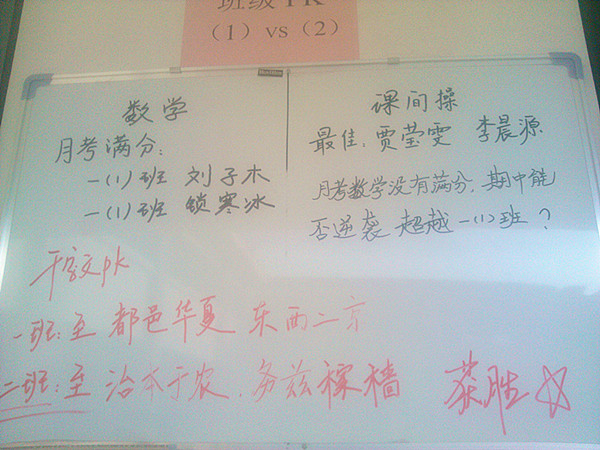 班级PK
（1）vs（2）
数学
月考满分：
一（1）班 刘子木
一（1）班 锁寒冰
课间操
最佳：贾莹雯 李晨源
月考数学没有满分，期中能
否逆袭 超越一（1）班？
千字文pk
一班：至 都邑华夏 东西二京
二班：至 治本于农，务兹稼穑 获胜